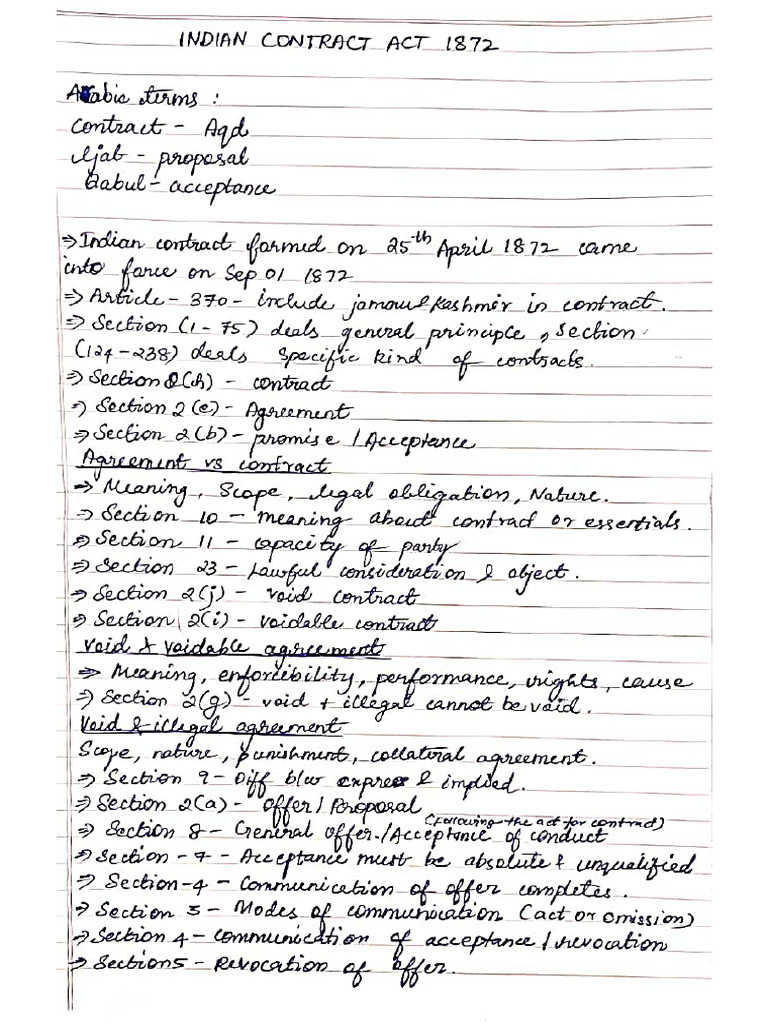 INDIAN CONTRACT ACT 1872
Arabic terms :
Contract - Aqd
Ijab - proposal
Qabul - acceptance
⇒ Indian contract formed on 25th April 1872 came
into force on Sep 01 1872
⇒ Article - 370 - include jamou & Kashmir in contract.
⇒ Section (1-75) deals general principle, section
(124-238) deals specific kind of contracts.
⇒ Section 2(h) - contract
⇒ Section 2(e) - Agreement
⇒ Section 2(b) - promise / Acceptance
Agreement vs contract
⇒ Meaning, Scope, legal obligation, Nature.
⇒ Section 10 - meaning about contract or essentials.
⇒ Section 11 - capacity of party
⇒ Section 23 - Lawful consideration & object.
⇒ Section 2(j) - void contract
⇒ Section 2(i) - voidable contract
Void & voidable agreement
⇒ Meaning, enforcibility, performance, rights, cause
⇒ Section 2(g) - void + illegal cannot be void.
Void & illegal agreement
Scope, nature, punishment, collateral agreement.
⇒ Section 9 - Diff b/w expres & implied.
⇒ Section 2(a) - offer / Proposal
(Following the act for contract)
⇒ Section 8 - General offer / Acceptance of conduct
⇒ Section - 7 - Acceptance must be absolute & unqualified
⇒ Section - 4 - Communication of offer completes.
⇒ Section 3 - Modes of communication (act or omission)
⇒ Section 4 - communication of acceptance / revocation
⇒ Section 5 - Revocation of offer.